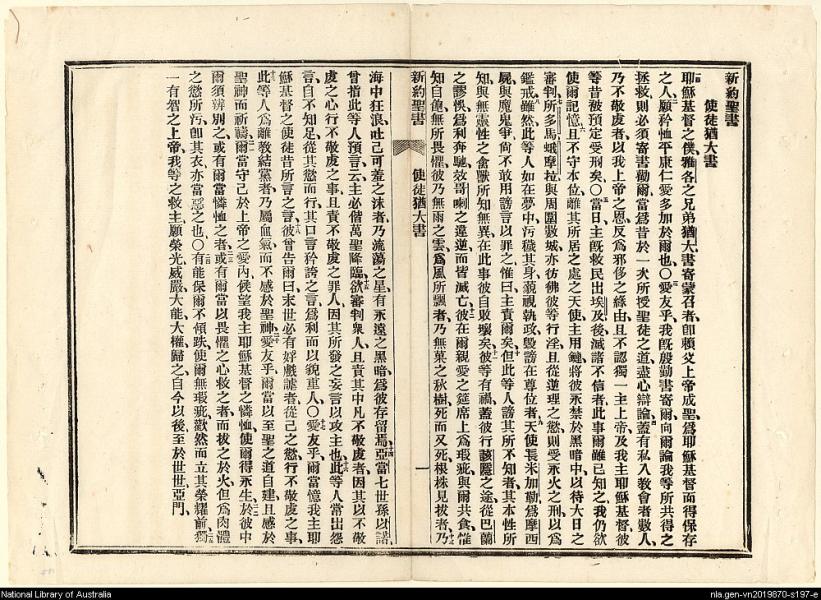 新約聖書
使徒猶大書
耶穌基督之僕雅各之兄弟猶大書寄蒙召者卽賴父上帝成聖爲耶穌基督而得保存
之人願矜恤平康仁愛多加於爾也〇愛友乎我旣殷勤書寄爾向爾論我等所共得之
拯救則必須寄書勸爾當爲昔於一次所授聖徒之道盡心辯論蓋有私入教會者數人
乃不敬虔者以我上帝之恩反爲邪侈之緣由且不認獨一主上帝及我主耶穌基督彼
等昔被預定受刑矣〇當日主旣救民出埃及後滅諸不信者此事爾雖已知之我仍欲
使爾記憶且不守本位離其所居之處之天使主用鏈將彼永禁於黑暗中以待大日之
審判所多馬蛾摩拉與周圍數城亦彷彿彼等行淫且從逆理之慾則受永火之刑以爲
鑑戒雖然此等人如在夢中污穢其身藐視執政毀謗在尊位者天使長米加勒爲摩西
屍與魔鬼爭尚不敢用謗言以罪之惟曰主責爾矣但此等人謗其所不知者其本性所
知與無靈性之禽獸所知無異在此事彼自敗壞矣彼等有禍蓋彼行該隱之途從巴蘭
之謬悞爲利奔馳效哥喇之違逆而皆滅亡彼在爾親愛之筵席上爲瑕疵與爾共食惟
知自飽無所畏懼彼乃無雨之雲爲風所飄者乃無菓之秋樹死而又死根株見拔者乃
新約聖書 使徒猶大書 一
海中狂浪吐己可羞之沫者乃流蕩之星有永遠之黑暗爲彼存留焉亞當七世孫以諾
曾指此等人預言云主必偕萬聖降臨欲審判衆人且責其中凡不敬虔者因其以不敬
虔之心行不敬虔之事且責不敬虔之罪人因其所發之妄言以攻主也此等人常出怨
言自不知足從其慾而行其口言矜誇之言爲利而以貌重人〇愛友乎爾當憶我主耶
穌基督之使徒昔所言之言彼曾告爾曰末世必有好戲謔者從己之慾行不敬虔之事
此等人爲離教結黨者乃屬血氣而不感於聖神愛友乎爾當以至聖之道自建且感於
聖神而祈禱爾當守己於上帝之愛內候望我主耶穌基督之憐恤使爾得永生於彼中
爾須辨別之或有爾當憐恤之者或有爾當以畏懼之心救之者而拔之於火但爲肉體
之慾所污卽其衣亦當惡之也〇有能保爾不傾跌使爾無瑕疵歡然而立其榮耀前獨
一有智之上帝我等之救主願榮光威嚴大能大權歸之自今以後至於世世亞門
National Library of Australia
nla.gen-vn2019870-s197-e